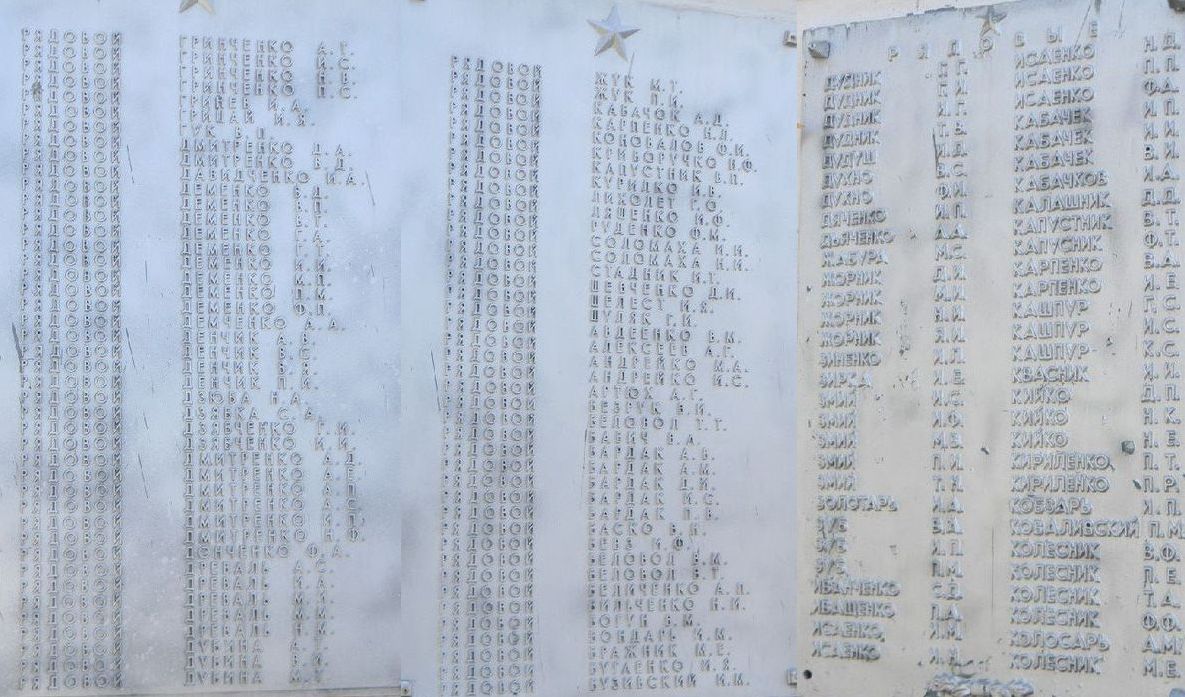 РЯДОВОЙ ГРИНЧЕНКО А.Т.
РЯДОВОЙ ГРИНЧЕНКО И.С.
РЯДОВОЙ ГРИНЧЕНКО
РЯДОВОЙ ГРИНЧЕНКО Н.С.
РЯДОВОЙ ГРИНЕВ И.А.
РЯДОВОЙ ГРИЦАЙ И.Я.
РЯДОВОЙ ГУК В.П.
РЯДОВОЙ ДМИТРЕНКО
РЯДОВОЙ ДМИТРЕНКО В.Д.
РЯДОВОЙ ДАВИДЧЕНКО И.А.
РЯДОВОЙ ДЕМЕНКО В.Д.
РЯДОВОЙ ДЕМЕНКО
РЯДОВОЙ ДЕМЕНКО
РЯДОВОЙ ДЕМЕНКО
РЯДОВОЙ ДЕМЕНКО
РЯДОВОЙ ДЕМЕНКО И.И.
РЯДОВОЙ ДЕМЕНКО
РЯДОВОЙ ДЕМЕНКО П.М.
РЯДОВОЙ ДЕМЕНКО Ф.П.
РЯДОВОЙ ДЕМЧЕНКО А.А.
РЯДОВОЙ ДЕНЧИК А.В.
РЯДОВОЙ ДЕНЧИК
РЯДОВОЙ ДЕНЧИК В.В.
РЯДОВОЙ ДЕНЧИК П.И.
РЯДОВОЙ ДЗЮБА Н.А.
РЯДОВОЙ ДЗЯБКА С.А.
РЯДОВОЙ ДЗЯБЧЕНКО Г.И.
РЯДОВОЙ ДЗЯБЧЕНКО И.И.
РЯДОВОЙ ДМИТРЕНКО А.Д.
РЯДОВОЙ ДМИТРЕНКО А.Е.
РЯДОВОЙ ДМИТРЕНКО
РЯДОВОЙ ДМИТРЕНКО
РЯДОВОЙ ДМИТРЕНКО
РЯДОВОЙ ДМИТРЕНКО Н.Ф.
РЯДОВОЙ ДОНЧЕНКО Ф.А.
РЯДОВОЙ ДРЕВАЛЬ А.С.
РЯДОВОЙ ДРЕВАЛЬ И.А.
РЯДОВОЙ ДРЕВАЛЬ
РЯДОВОЙ ДРЕВАЛЬ М.М.
РЯДОВОЙ ДРЕВАЛЬ Н.М.
РЯДОВОЙ ДУБИНА
РЯДОВОЙ ДУБИНА В.
РЯДОВОЙ ДУБИНА М.И.
РЯДОВОЙ ЖУК М.Т.
РЯДОВОЙ ЖУК П.И.
РЯДОВОЙ КАБАЧОК А.Д.
РЯДОВОЙ КАРПЕНКО Н.Л.
РЯДОВОЙ КОНОВАЛОВ Ф.И.
РЯДОВОЙ КРИВОРУЧКО Н.Ф.
РЯДОВОЙ КАПУСТНИК В.П.
РЯДОВОЙ КУРИЛКО И.В.
РЯДОВОЙ ЛИХОЛЕТ Г.О.
РЯДОВОЙ ЛЯШЕНКО И.Ф.
РЯДОВОЙ РУДЕНКО Ф.М.
РЯДОВОЙ СОЛОМАХА И.И.
РЯДОВОЙ СОЛОМАХА Н.И.
РЯДОВОЙ СТАДНИК И.Т.
РЯДОВОЙ ШЕВЧЕНКО Д.И.
РЯДОВОЙ ШЕЛЕСТ И.Я.
РЯДОВОЙ ШУЛЯК Г.И.
РЯДОВОЙ АВДЕЕНКО В.М.
РЯДОВОЙ АЛЕКСЕЕВ А.Г.
РЯДОВОЙ АНДРЕЙКО М.А.
РЯДОВОЙ АНДРЕЙКО И.С.
РЯДОВОЙ АРТЮХ А.Г.
РЯДОВОЙ БЕЗРУК В.И.
РЯДОВОЙ БЕЛОВОЛ Т.Т.
РЯДОВОЙ БАБИЧ В.А.
РЯДОВОЙ БАРДАК А.В.
РЯДОВОЙ БАРДАК А.М.
РЯДОВОЙ БАРДАК Д.И.
РЯДОВОЙ БАРДАК И.С.
РЯДОВОЙ БАРДАК П.В.
РЯДОВОЙ БАСКО В.Н.
РЯДОВОЙ БЕЗЗ Н.Ф.
РЯДОВОЙ БЕЛОВОЛ В.М.
РЯДОВОЙ БЕЛОВОЛ В.Т.
РЯДОВОЙ БЕЛИЧЕНКО А.П.
РЯДОВОЙ БИЛЬЧЕНКО Н.И.
РЯДОВОЙ БОГУН В.М.
РЯДОВОЙ БОНДАРЬ И.М.
РЯДОВОЙ БРАЖНИК М.Е.
РЯДОВОЙ БУГЛЕНКО И.Я.
РЯДОВОЙ БУЗИВСКИЙ И.И.
РЯДОВЫЕ
ДУДНИК Г.Г.
ДУДНИК Г.И.
ДУДНИК И.Г.
ДУДНИК Т.В.
ДУДУШ И.Д.
ДУХНО В.С.
ДУХНО Ф.И.
ДЯЧЕНКО И.П.
ДЬЯЧЕНКО А.А.
ЖАБУРА М.С.
ЖОРНИК Д.И.
ЖОРНИК М.И.
ЖОРНИК Н.И.
ЖОРНИК Я.И.
ЗИНЕНКО И.Л.
ЗИРКА И.Е.
ЗМИЙ И.С.
ЗМИЙ И.Ф.
ЗМИЙ М.Е.
ЗМИЙ П.И.
ЗМИЙ Т.И.
ЗОЛОТАРЬ И.А.
ЗУБ В.В.
ЗУБ И.П.
ЗУБ П.М.
ИВАНЧЕНКО С.Д.
ИВАЩЕНКО П.А.
ИСАЕНКО И.М.
ИСАЕНКО И.Н.
ИСАЕНКО Н.Д.
ИСАЕНКО П.П.
ИСАЕНКО Ф.А.
КАБАЧЕК И.П.
КАБАЧЕК И.И.
КАБАЧЕК В.И.
КАБАЧКОВ И.А.
КАЛАШНИК Д.Д.
КАПУСТНИК В.Т.
КАПУСНИК Ф.Т.
КАРПЕНКО В.А.
КАРПЕНКО И.Е.
КАШПУР Г.С.
КАШПУР И.С.
КАШПУР К.С.
КВАСНИК И.И.
КИЙКО Д.П.
КИЙКО Н.К.
КИЙКО Н.Е.
КИРИЛЕНКО П.Т.
КИРИЛЕНКО П.Р.
КОБЗАРЬ Я.П.
КОВАЛИВСКИЙ П.М.
КОЛЕСНИК В.Ф.
КОЛЕСНИК П.Е.
КОЛЕСНИК Т.А.
КОЛЕСНИК Ф.Ф.
КОЛОСАРЬ А.М.
КОЛЕСНИК М.Е.